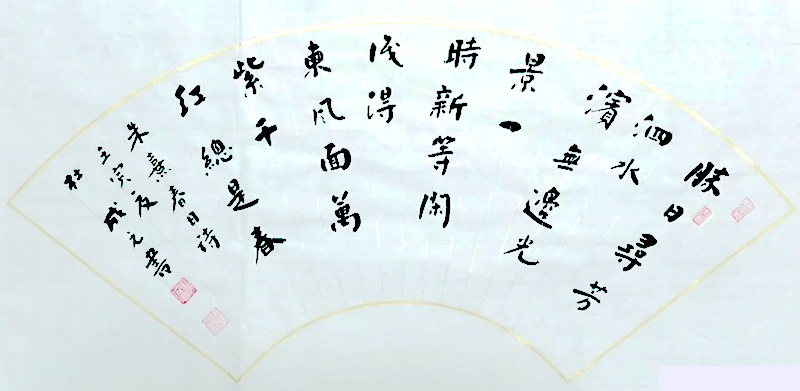 勝日尋芳
泗水
濱無邊光
景一
時新等閑
識得
東风面萬
紫千
红總是春
朱熹春日詩
壬寅夏
杜成元書